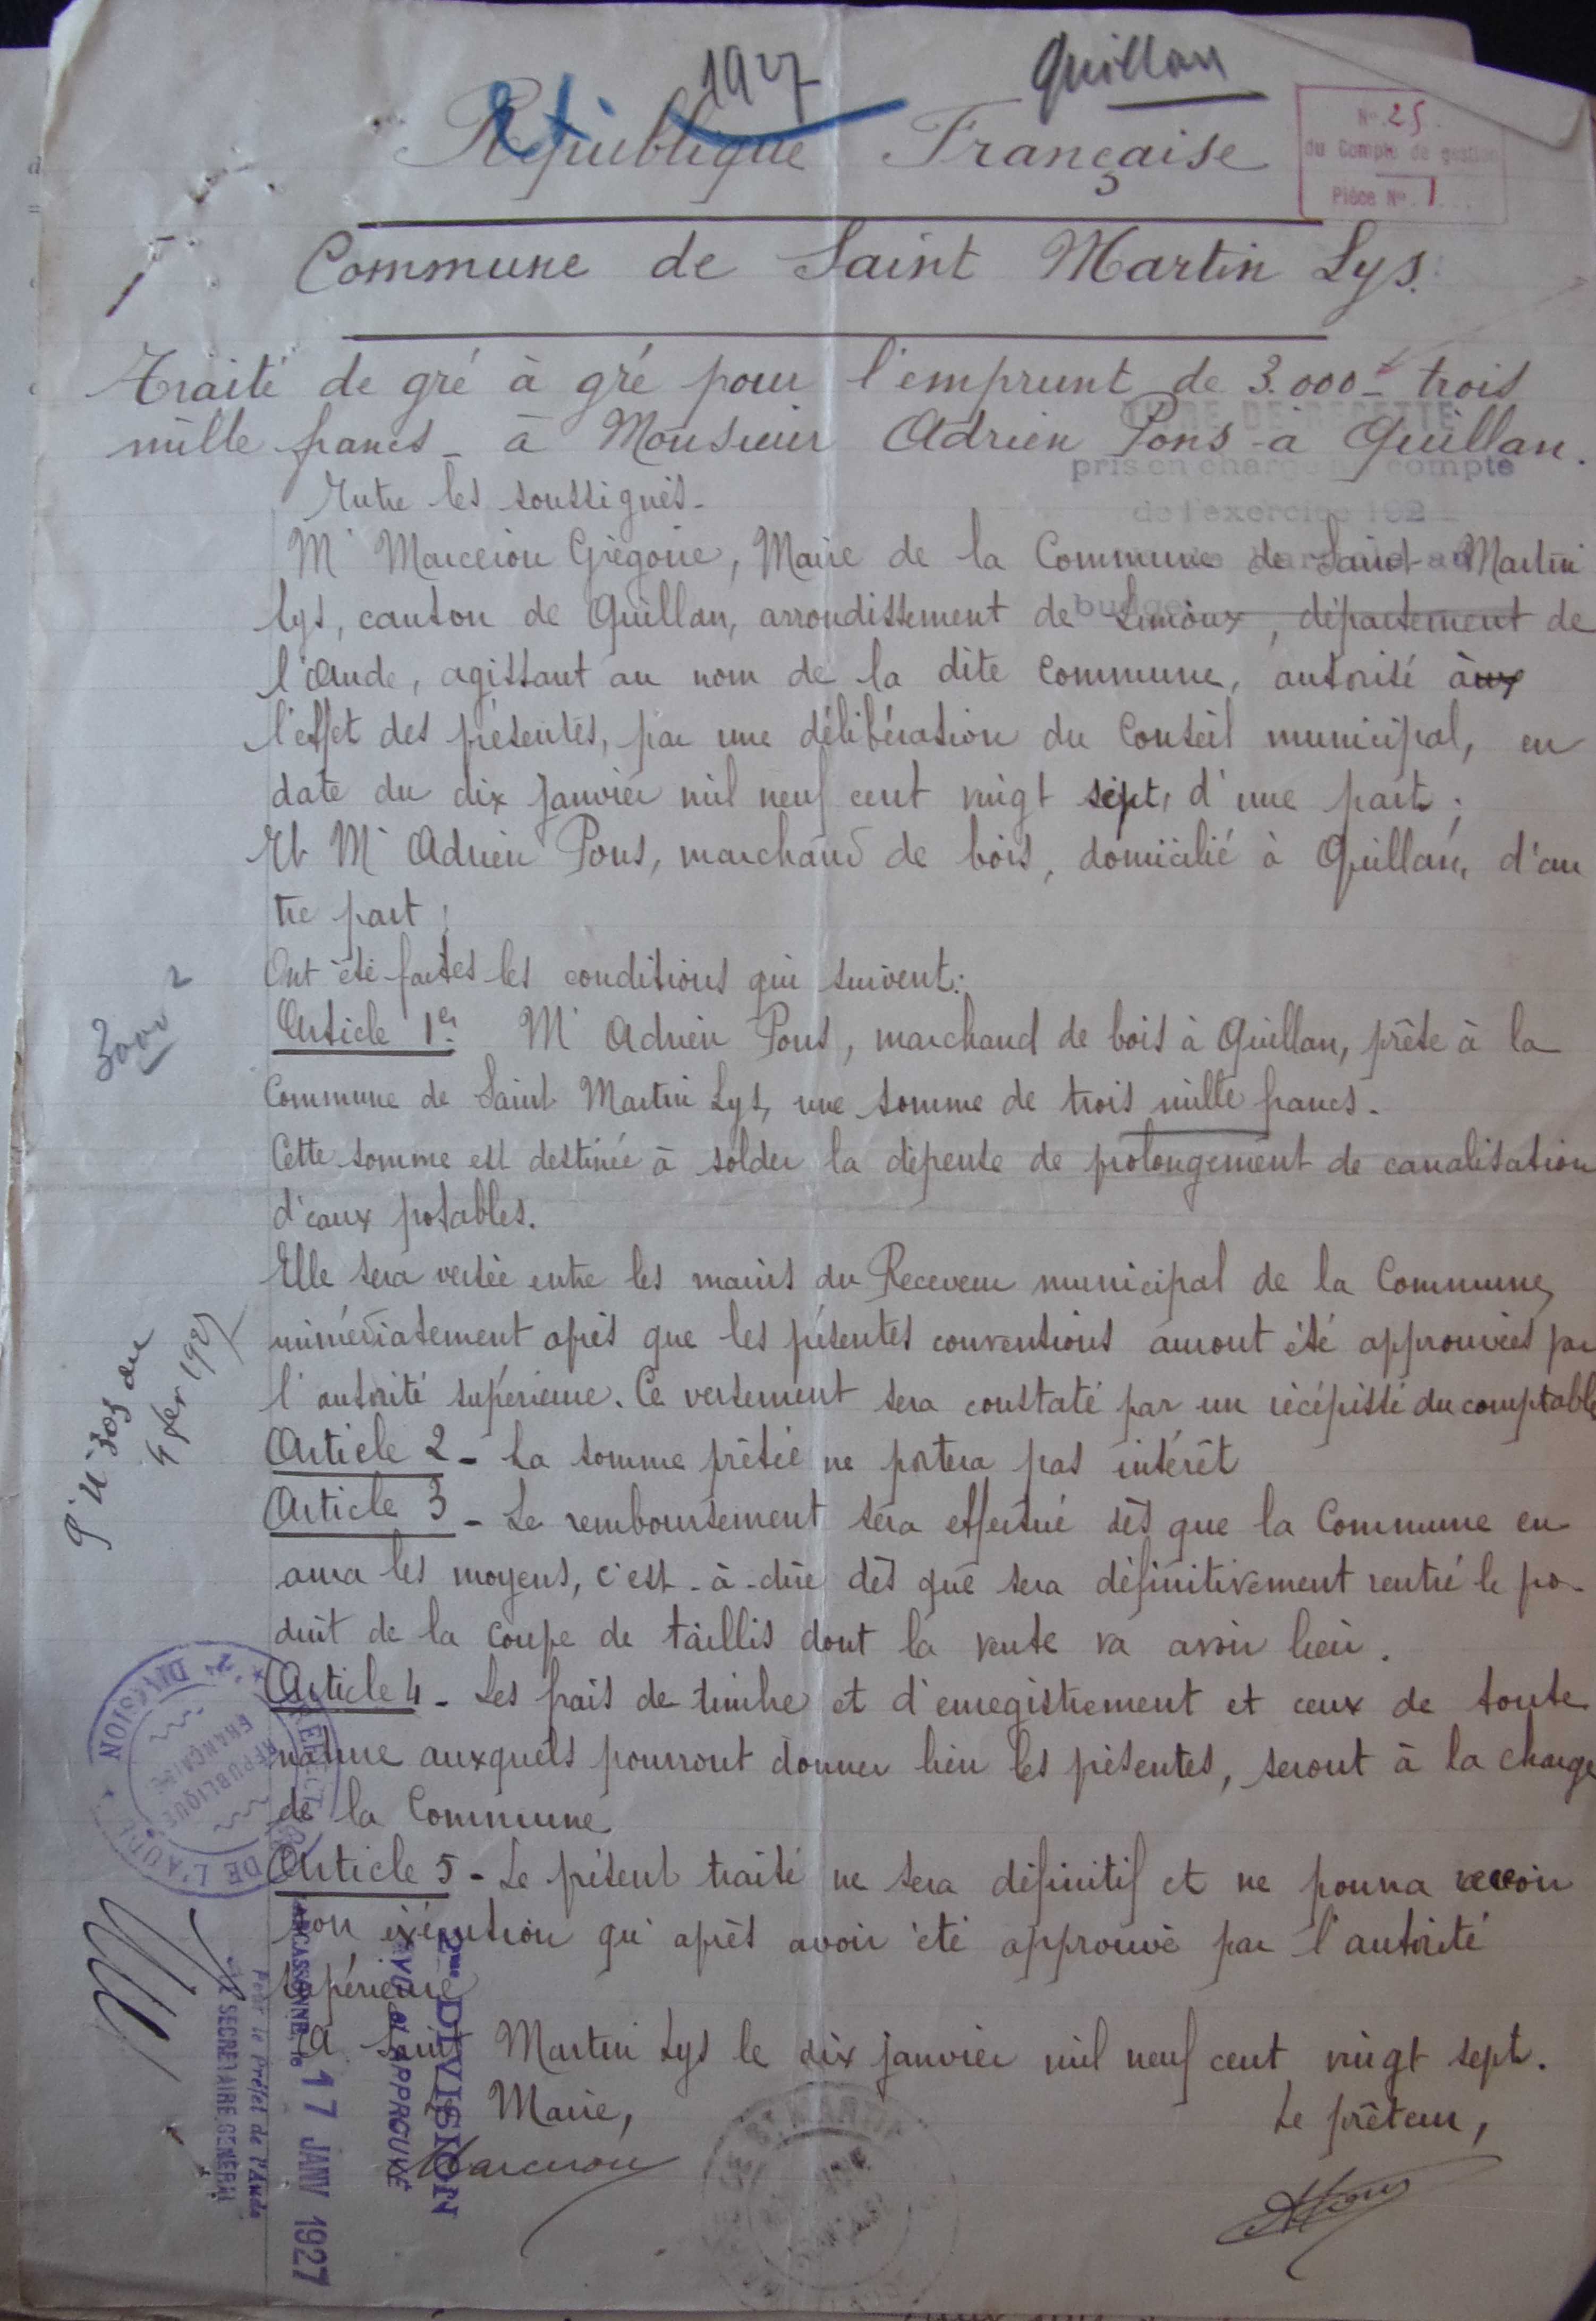 1927
Quillan
République Française
No. 25
du Compte de gestion
Pièce No. 1
Commune de Saint Martin Lys.
Traité de gré à gré pour l'emprunt de 3.000 - trois
mille francs - à Monsieur Adrien Pons à Quillan.
TITRE DE RECETTE
pris en charge au compte
de l'exercice 192
budget
Entre les soussignés.
Mr Marcerou Grégoire, Maire de la Commune de Saint Martin
Lys, canton de Quillan, arrondissement de Limoux, département de
l'Aude, agissant au nom de la dite Commune, autorisé à
l'effet des présentes, par une délibération du Conseil municipal, en
date du dix janvier mil neuf cent vingt sept, d'une part ;
Et Mr Adrien Pons, marchand de bois, domicilié à Quillan, d'au
tre part ;
Ont été faites les conditions qui suivent :
Article 1er. Mr Adrien Pons, marchand de bois à Quillan, prête à la
Commune de Saint Martin Lys, une somme de trois mille francs.
Cette somme est destinée à solder la dépense de prolongement de canalisation
d'eaux potables.
Elle sera versée entre les mains du Receveur municipal de la Commune,
immédiatement après que les présentes conventions auront été approuvées par
l'autorité supérieure. Ce versement sera constaté par un récépissé du comptable
Article 2 - La somme prêtée ne portera pas intérêt
Article 3 - Le remboursement sera effectué dès que la Commune en
aura les moyens, c'est-à-dire dès que sera définitivement rentré le pro-
duit de la coupe de taillis dont la vente va avoir lieu.
Article 4 - Les frais de timbre et d'enregistrement et ceux de toute
nature auxquels pourront donner lieu les présentes, seront à la charge
de la Commune
Article 5 - Le présent traité ne sera définitif et ne pourra recevoir
son exécution qu'après avoir été approuvé par l'autorité
supérieure
A Saint Martin Lys le dix janvier mil neuf cent vingt sept.
Le Maire,
Le prêteur,
Marcerou
APons
3000
P. N° 305 du
4 fév 1927
PRÉFECTURE DE L'AUDE
2e DIVISION
RÉPUBLIQUE
FRANÇAISE
2me DIVISION
VU et APPROUVÉ
CARCASSONNE, le 17 JANV 1927
Pour le Préfet de l'Aude
LE SECRÉTAIRE GÉNÉRAL
ST MARTIN